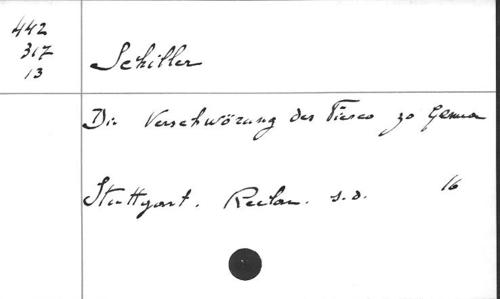 442
317
13
Schiller
Die Verschwörung des Fiesco zo Genua
Stuttgart. Reclam. s.d. 16